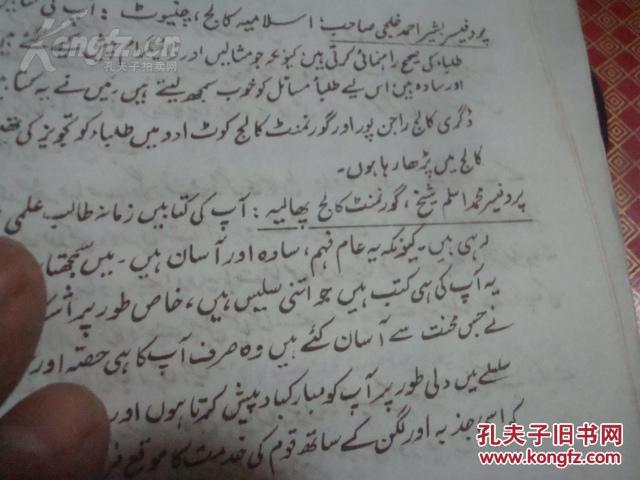 پروفیسر بشیر احمد خلجی صاحب: اسلامیہ کالج، چنیوٹ: آپ کی
طلباء کی صحیح راہنمائی کرتی ہیں کیونکہ جو مثالیں اور
اور سادہ ہیں اس لیے طلبأ مسائل کو خوب سمجھ لیتے ہیں۔ میں نے یہ
ڈگری کالج راجن پور اور گورنمنٹ کالج کوٹ ادو میں طلباء کو تجویز کی
کالج میں پڑھا رہا ہوں۔
پروفیسر محمد اسلم شیخ، گورنمنٹ کالج پھالیہ: آپ کی کتابیں زمانۂ طالب علمی
رہی ہیں۔ کیونکہ یہ عام فہم، سادہ اور آسان ہیں۔ میں سمجھتا
یہ آپ کی ہی کتب ہیں جو اتنی سلیس ہیں، خاص طور پر
نے جس محنت سے آسان کئے ہیں وہ صرف آپ کا ہی حصہ اور
سلسلے میں دلی طور پر آپ کو مبارکباد پیش کرتا ہوں اور
کہ اسی جذبہ اور لگن کے ساتھ قوم کی خدمت کا موقع
Kongfz.com
孔夫子拍卖网
孔夫子旧书网
www.kongfz.com